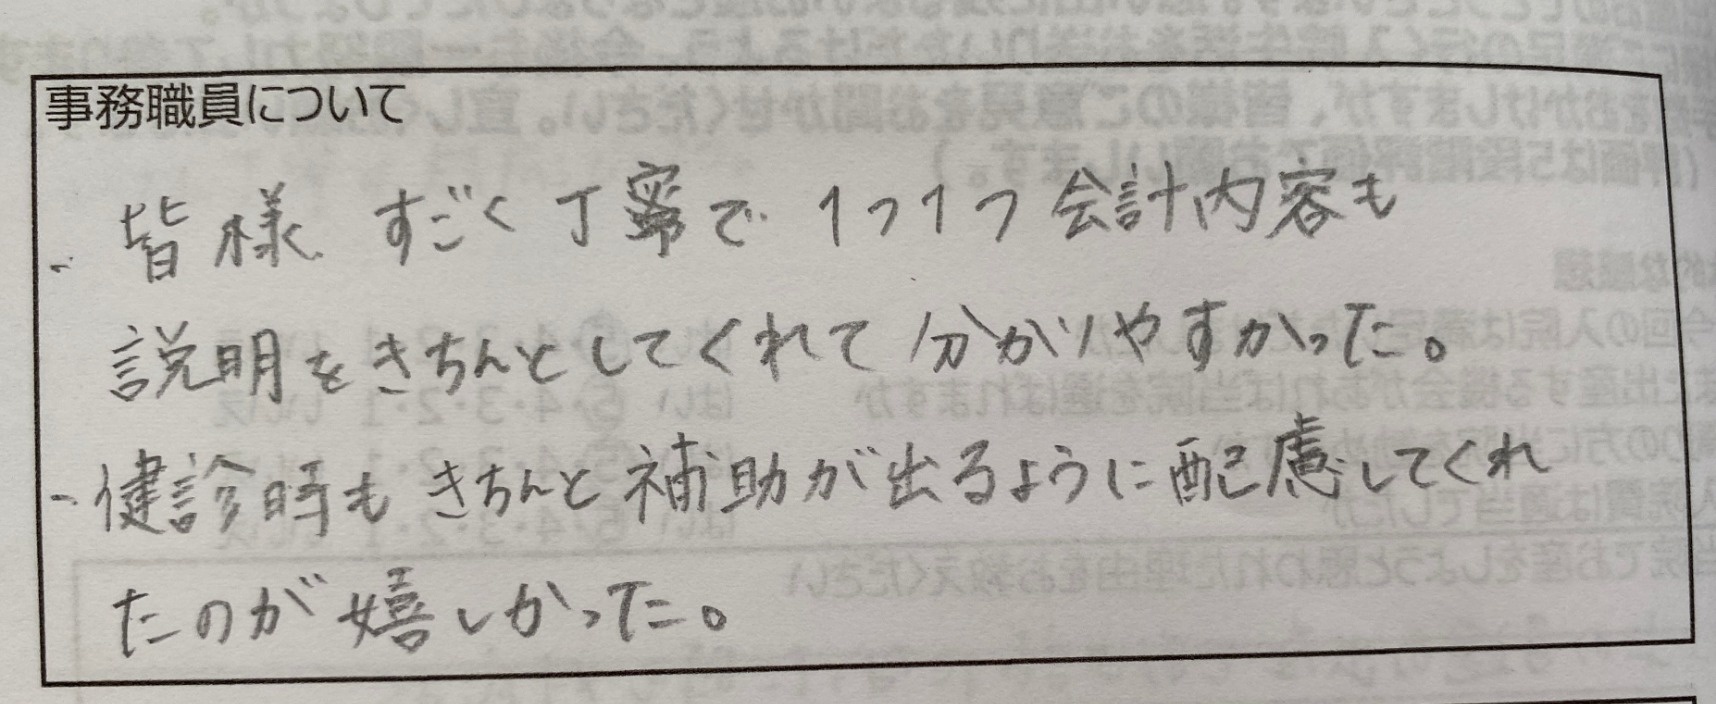 事務職員について
- 皆様 すごく丁寧で 1つ1つ会計内容も
説明をきちんとしてくれて分かりやすかった。
- 健診時もきちんと補助が出るように配慮してくれ
たのが嬉しかった。